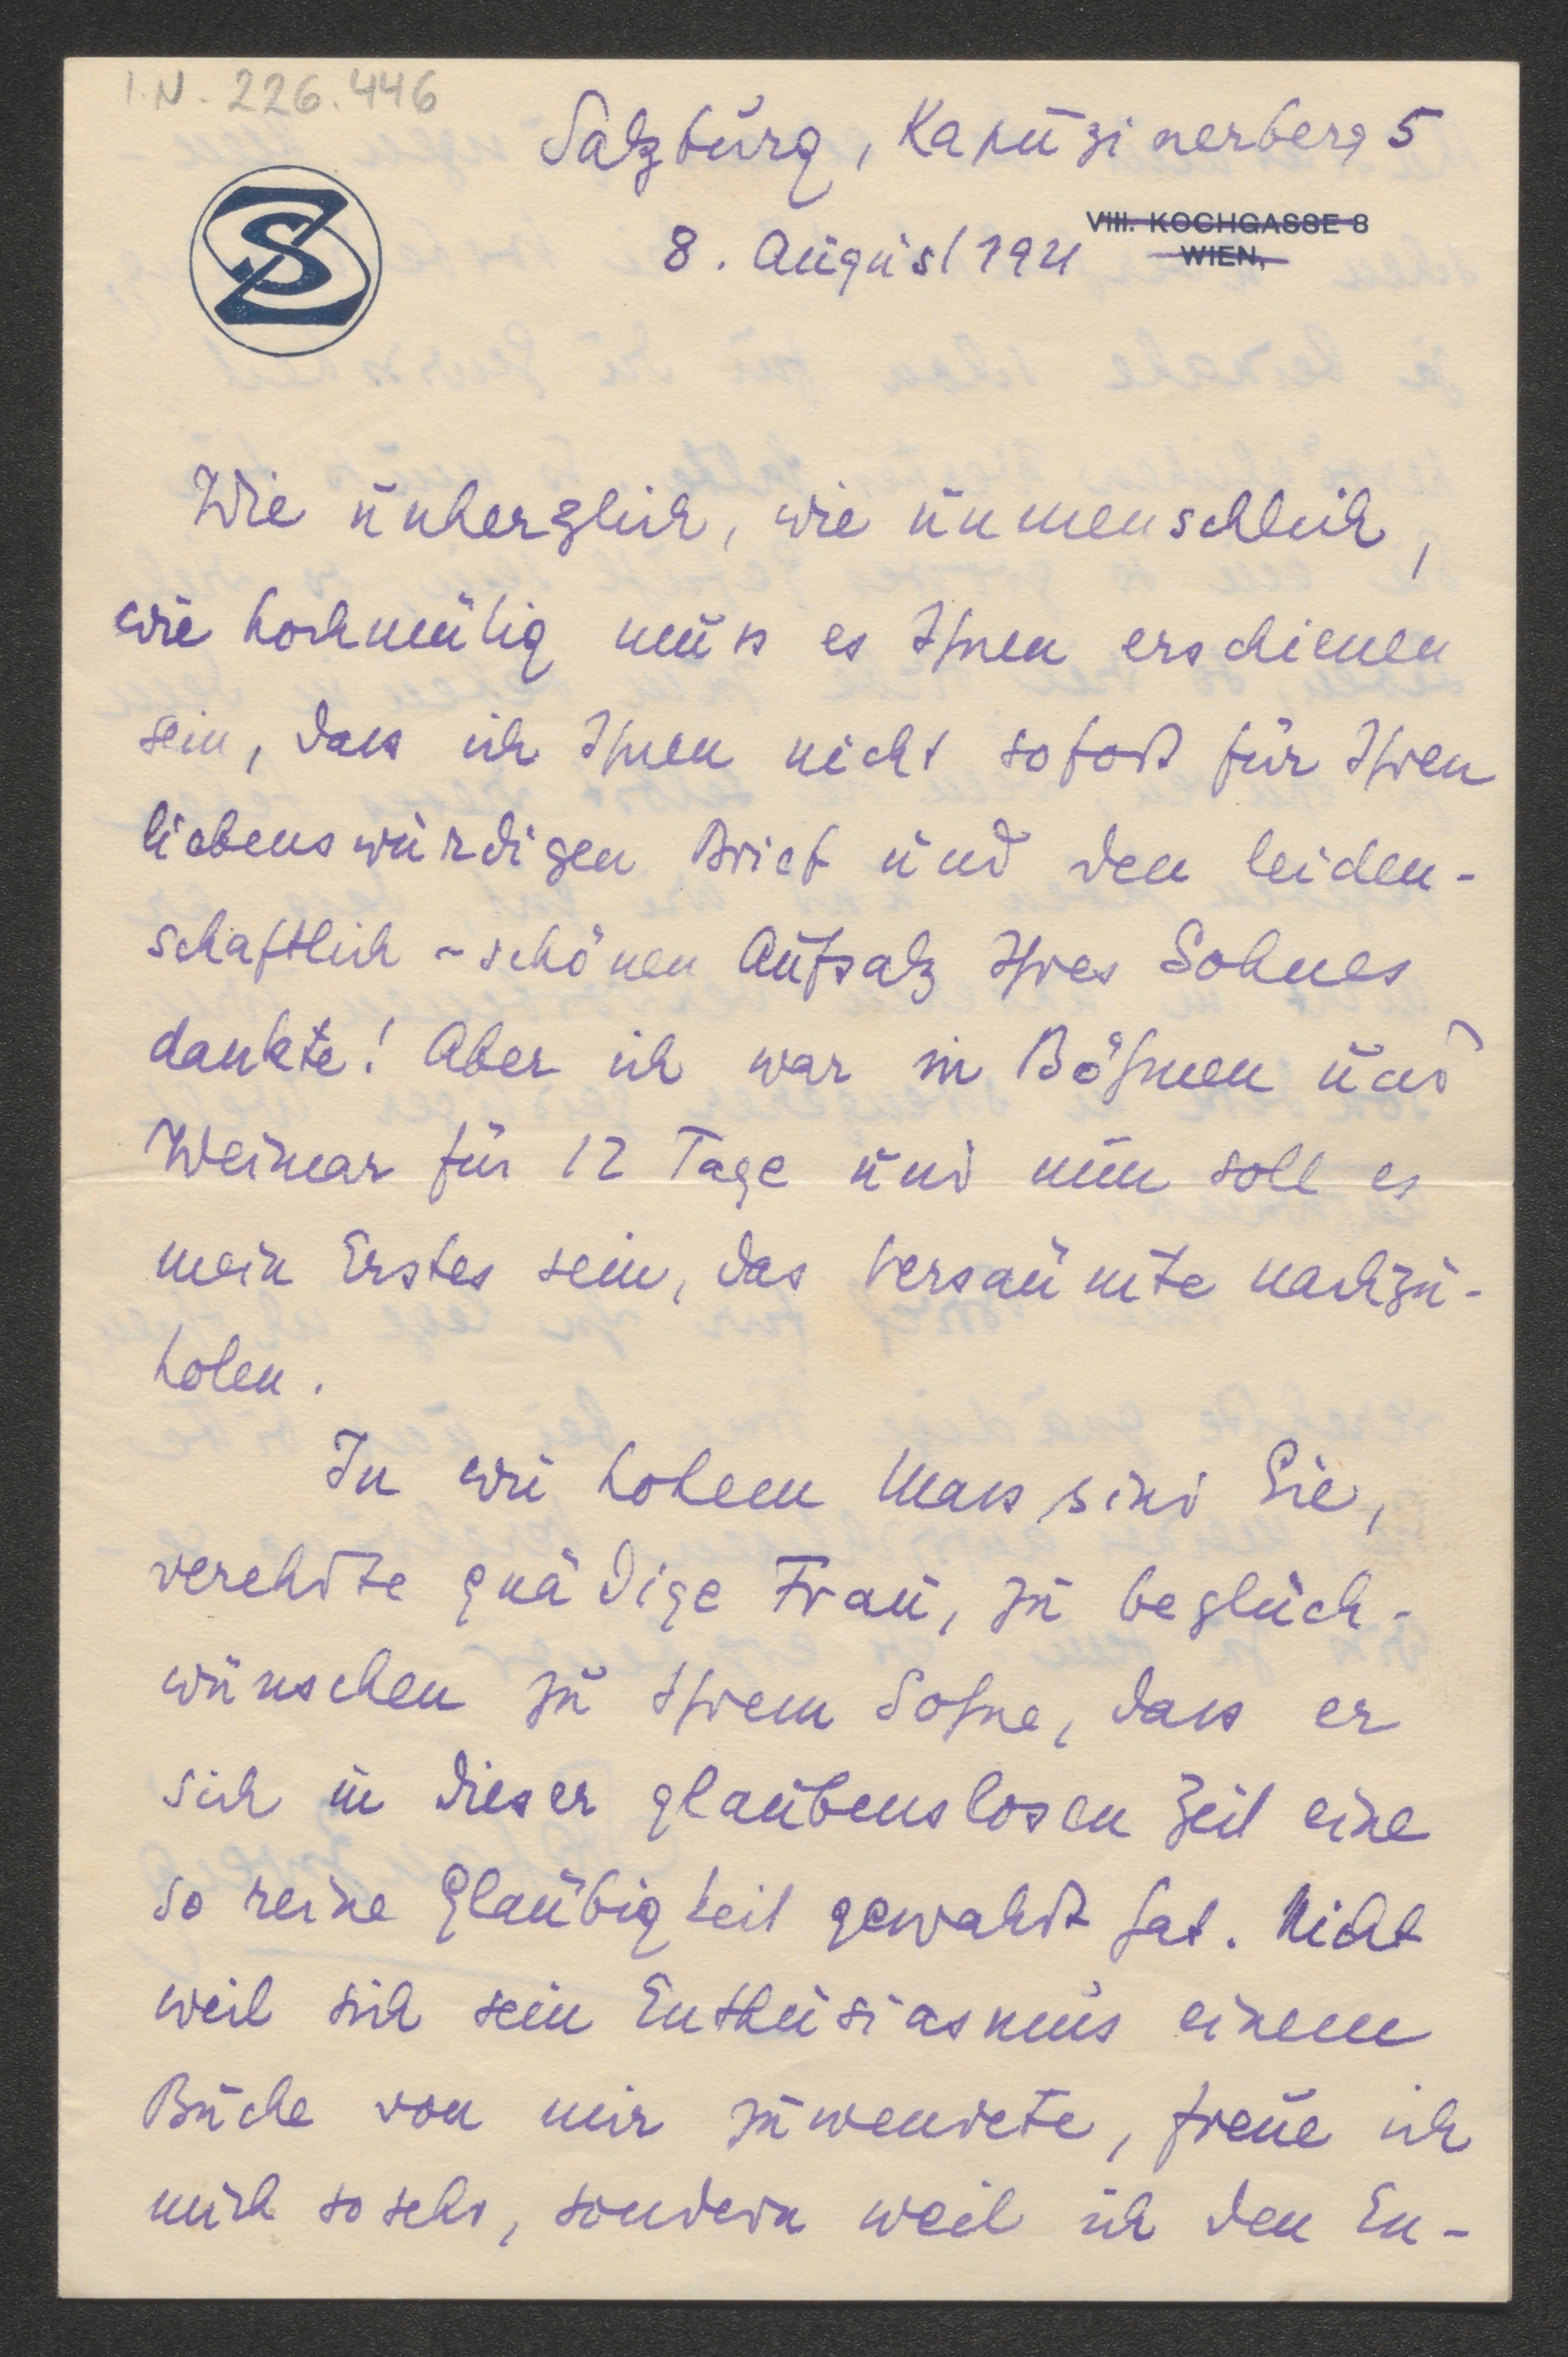 I.N. 226.446
Salzburg, Kapuzinerberg 5
VIII. KOCHGASSE 8
8. August 1921
WIEN,
SZ
Wie unherzlich, wie unmenschlich,
wie hochmütig muss es Ihnen erschienen
sein, dass ich Ihnen nicht sofort für Ihren
liebenswürdigen Brief und den leiden-
schaftlich-schönen Aufsatz Ihres Sohnes
dankte! Aber ich war in Böhmen und
Weimar für 12 Tage und nun soll es
mein Erstes sein, das Versäumte nachzu-
holen.
In wie hohem Mass sind Sie,
verehrte gnädige Frau, zu beglück-
wünschen zu Ihrem Sohne, dass er
sich in dieser glaubenslosen Zeit eine
so reine Gläubigkeit gewahrt hat. Nicht
weil sich sein Enthusiasmus einem
Buche von mir zuwendete, freue ich
mich so sehr, sondern weil ich den En-